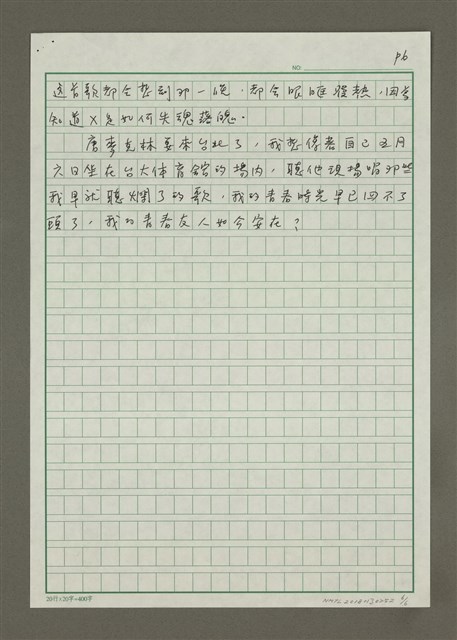 P6
NO:
这首歌都会想到那一晚，都会眼眶發熱，因為
知道X是如何失魂落魄。
唐麥克林要來台北了，我想像著自己五月
六日坐在台大体育館的場内，聽他現場唱那些
我早就聽爛了的歌，我的青春時光早已回不了
頭了，我的青春友人如今安在？
20行×20字=400字
6/6